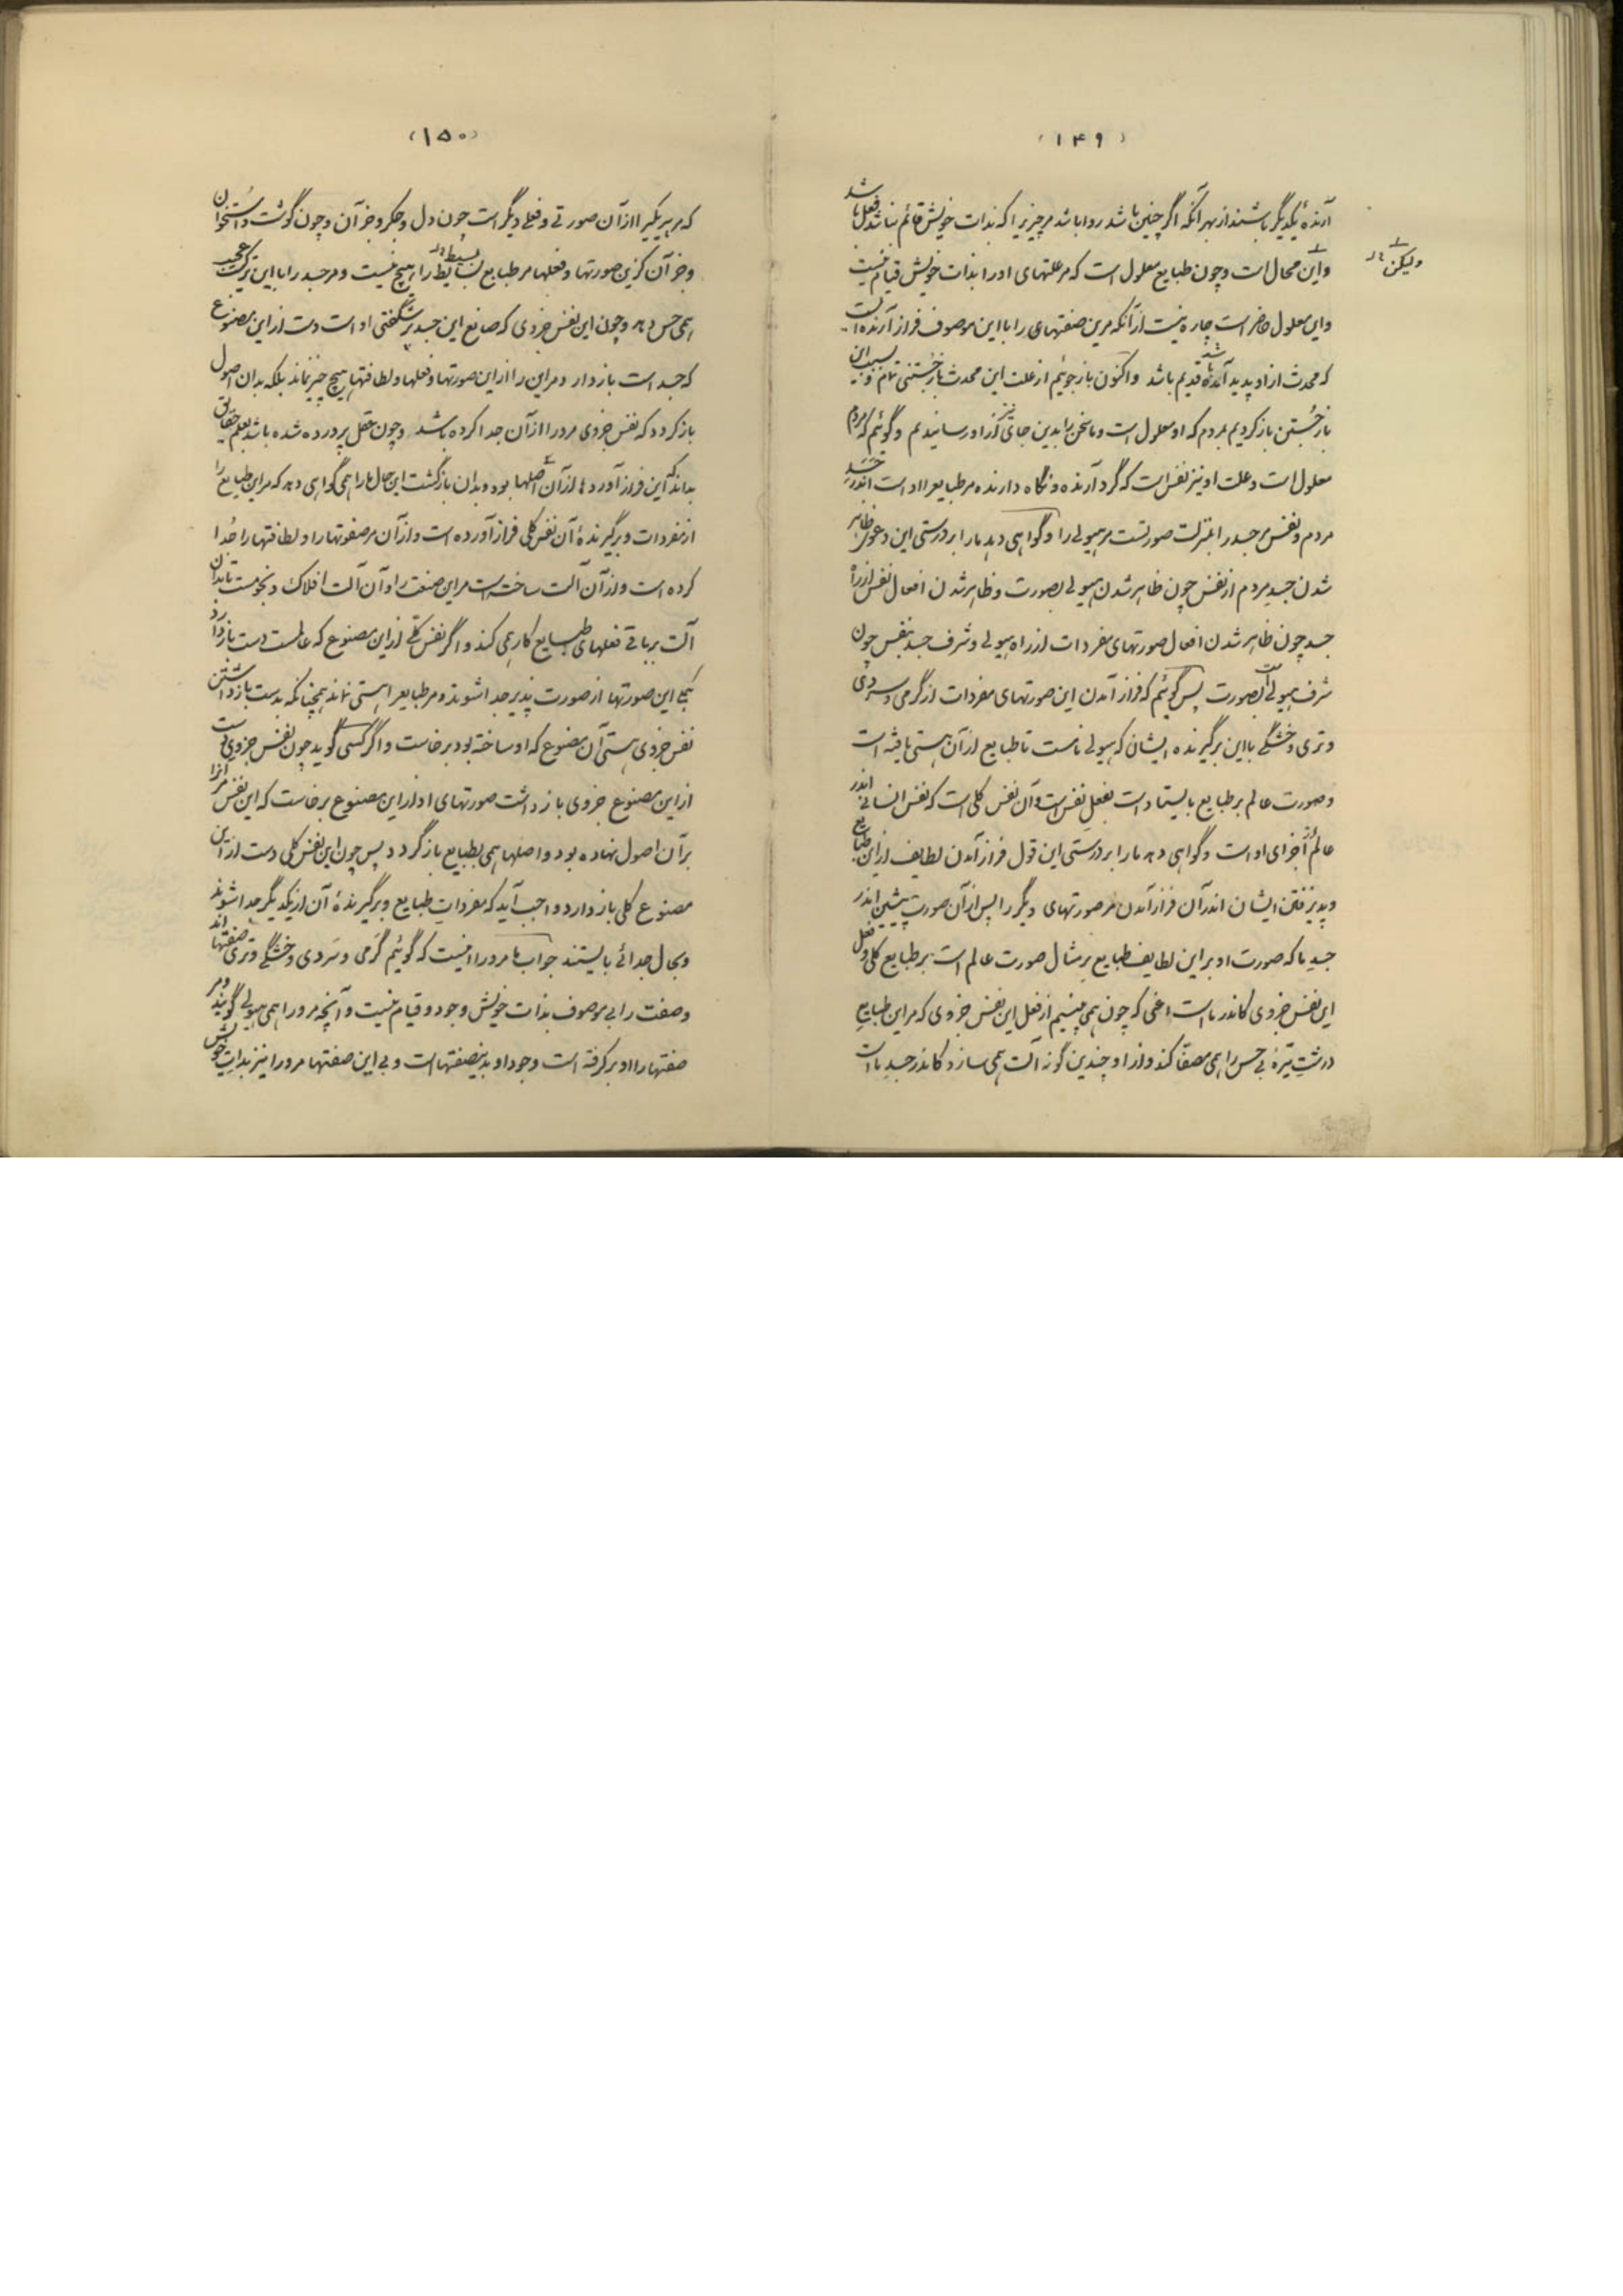 (۱۴۹)
آرندهٔ یکدیگر باشند از بهر آنکه اگر چنین باشد روا باشد مر چیزیرا که بذات خویش قائم نباشد فعل باشد
ولیکن
واین محال است و چون طبایع معلول است که مر علتهای اورا بذات خویش قیام نیست
واین معلول حاضر است چاره نیست از آنکه مرین صفتهای را با این موصوف فراز آرنده است
که محدث از او پدید آینده قدیم باشد و اکنون باز جوئیم از علت این محدث باز جستنی تمام و سبب این
باز جُستن باز کردیم بمردم که او معلول است وما سخن را بدین جای از او رسانیدیم و گوئیم که مردم
معلول است و علت او نیز نفس است که گرد آرنده و نگاه دارنده مر طبایع را اوست اندر جسد
مردم ونفس مر جسد را بمنزلت صورتست مر هیولی را و گواهی دهد مارا بر درستی این دعوی ظاهر
شدن جسد مردم از نفس چون ظاهر شدن هیولی بصورت و ظاهر شدن افعال نفس از راه
جسد چون ظاهر شدن افعال صورتهای مفردات از راه هیولی و شرف جسد بنفس چون
شرف هیولی بصورت پس گوئیم که فراز آمدن این صورتهای مفردات از گرمی و سردی
و تری و خشکی با این برگیرنده ایشان که هیولی نامست تا طبایع از آن هستی یافته است
وصورت عالم بر طبایع بایستاده است بفعل نفس است وآن نفس کلی است که نفس انسانی اندر
عالم از اجزای او است و گواهی دهد مارا بر درستی این قول فراز آمدن لطایف از این طبایع
و پذیرفتن ایشان اندر آن فراز آمدن مر صورتهای دیگر را پس از آن صورت پیشین اندر
جسد ما که صورت او بر این لطایف طبایع بر مثال صورت عالم است بر طبایع کلی و فعل
این نفس جزوی کاندر ماست اعنی که چون همی بینیم از فعل این نفس جزوی که مر این طبایع
درشتِ تیرهٔ بی حس را همی مصفا کند و از او چندین گونه آلت همی سازد کاندر جسد ما است
(۱۵۰)
که مر هر یکیرا از آن صورتی و فعلی دیگر است چون دل و جگر و جز آن و چون گوشت و استخوان
و جز آن کزین صورتها و فعلها مر طبایع بسایط را هیچ نیست و مر جسد را با این ترکیب عجیب
بسیط
همی حس دهد و چون این نفس جزوی که صانع این جسد پر شگفتی او است دست از این مصنوع
که جسد است باز دارد مر این را از این صورتها و فعلها و لطافتها هیچ چیز نماند بلکه بدان اصول
باز گردد که نفس جزوی مر ورا از آن جدا کرده باشد و چون عقل پرورده شده باشد بعلم حقایق
بداند که این فراز آوردها از آن اصلها بود و بدان باز گشت این حال مارا همی گواهی دهد که مر این طبایع را
از مفردات و برگیرندهٔ آن نفس کلی فراز آورده است و از آن مر صفوتها را و لطافتها را جُدا
کرده است و از آن آلت ساخته است مر این صنعت را و آن آلت افلاک و نجومست تا بدان
آلت بر باقی فعلهای طبایع کار همی کند و اگر نفس کلی از این مصنوع که عالمست دست باز دارد
این صورتها از صورت پذیر جدا شوند و مر طبایع را هستی نماند همچنانکه بدست باز داشتن
نفس جزوی هستی آن مصنوع که او ساخته بود برخاست و اگر کسی گوید چون نفس جزوی دست
از این مصنوع جزوی باز داشت صورتهای او از این مصنوع برخاست که این نفس مر آنرا
بر آن اصول نهاده بود و اصلها همی بطبایع باز گردد پس چون این نفس کلی دست از این
مصنوع کلی باز دارد واجب آید که مفرداتِ طبایع و برگیرندهٔ آن از یکدیگر جدا شوند
و بحال جدائی بایستند جواب ما مر ورا اینست که گوئیم گَرمی و سَردی و خشگی و تری صفتها اند
وصفت را بی موصوف بذات خویش وجود و قیام نیست و آنچه مر ورا همی هیولی گویند و مر
صفتها را او بر گرفته است وجود او بدین صفتها است و بی این صفتها مر ورا نیز بذاتِ خویش